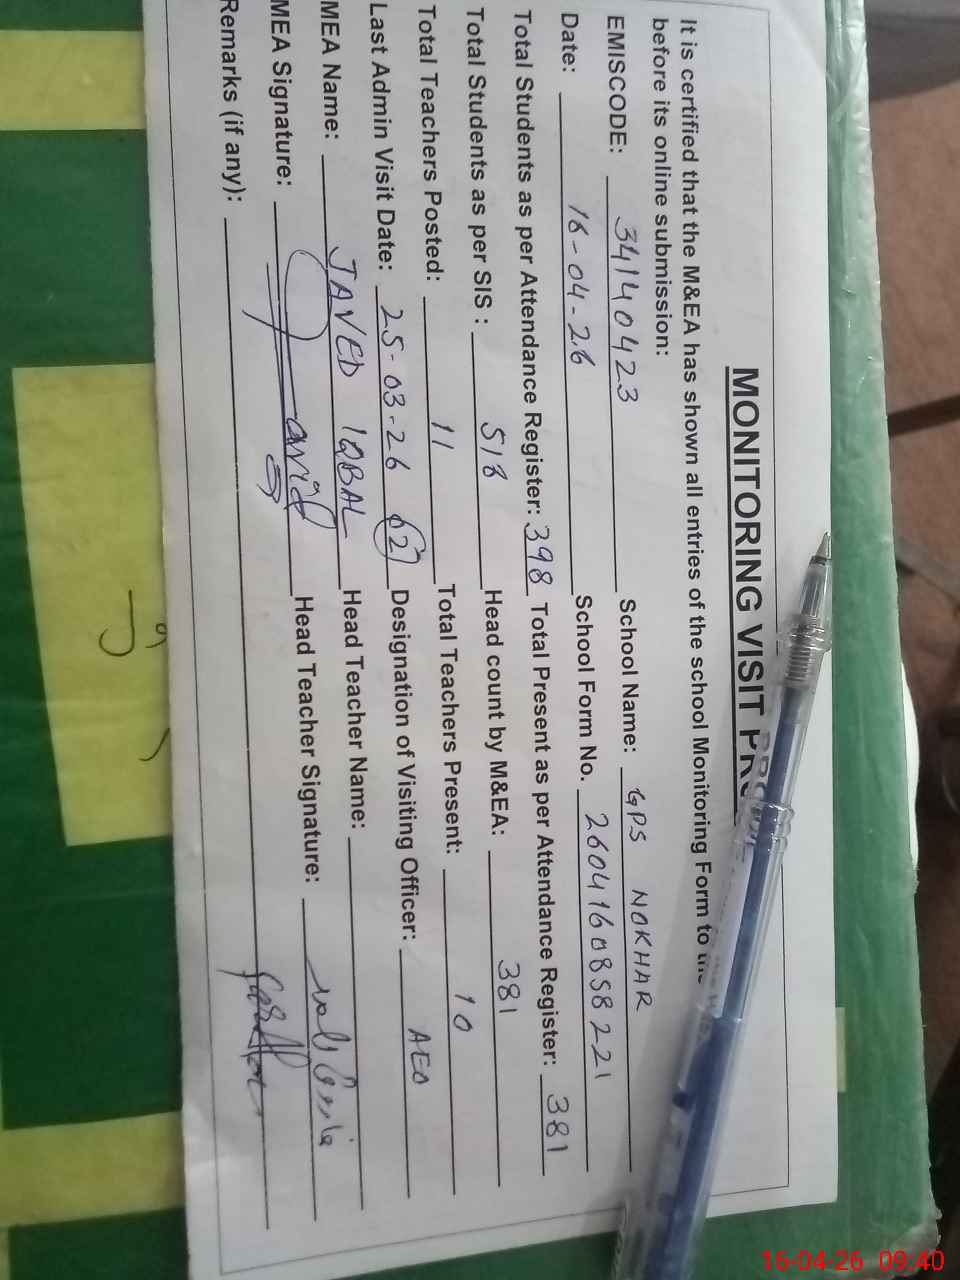 MONITORING VISIT PRO
It is certified that the M&EA has shown all entries of the school Monitoring Form to the
before its online submission:
EMISCODE: 34140423 School Name: GPS NOKHAR
Date: 16-04-26 School Form No. 2604160858221
Total Students as per Attendance Register: 398 Total Present as per Attendance Register: 381
Total Students as per SIS : 518 Head count by M&EA: 381
Total Teachers Posted: 11 Total Teachers Present: 10
Last Admin Visit Date: 25-03-26 02 Designation of Visiting Officer: AEO
MEA Name: JAVED IQBAL Head Teacher Name:
MEA Signature: Head Teacher Signature:
Remarks (if any):
16-04-26 09:40